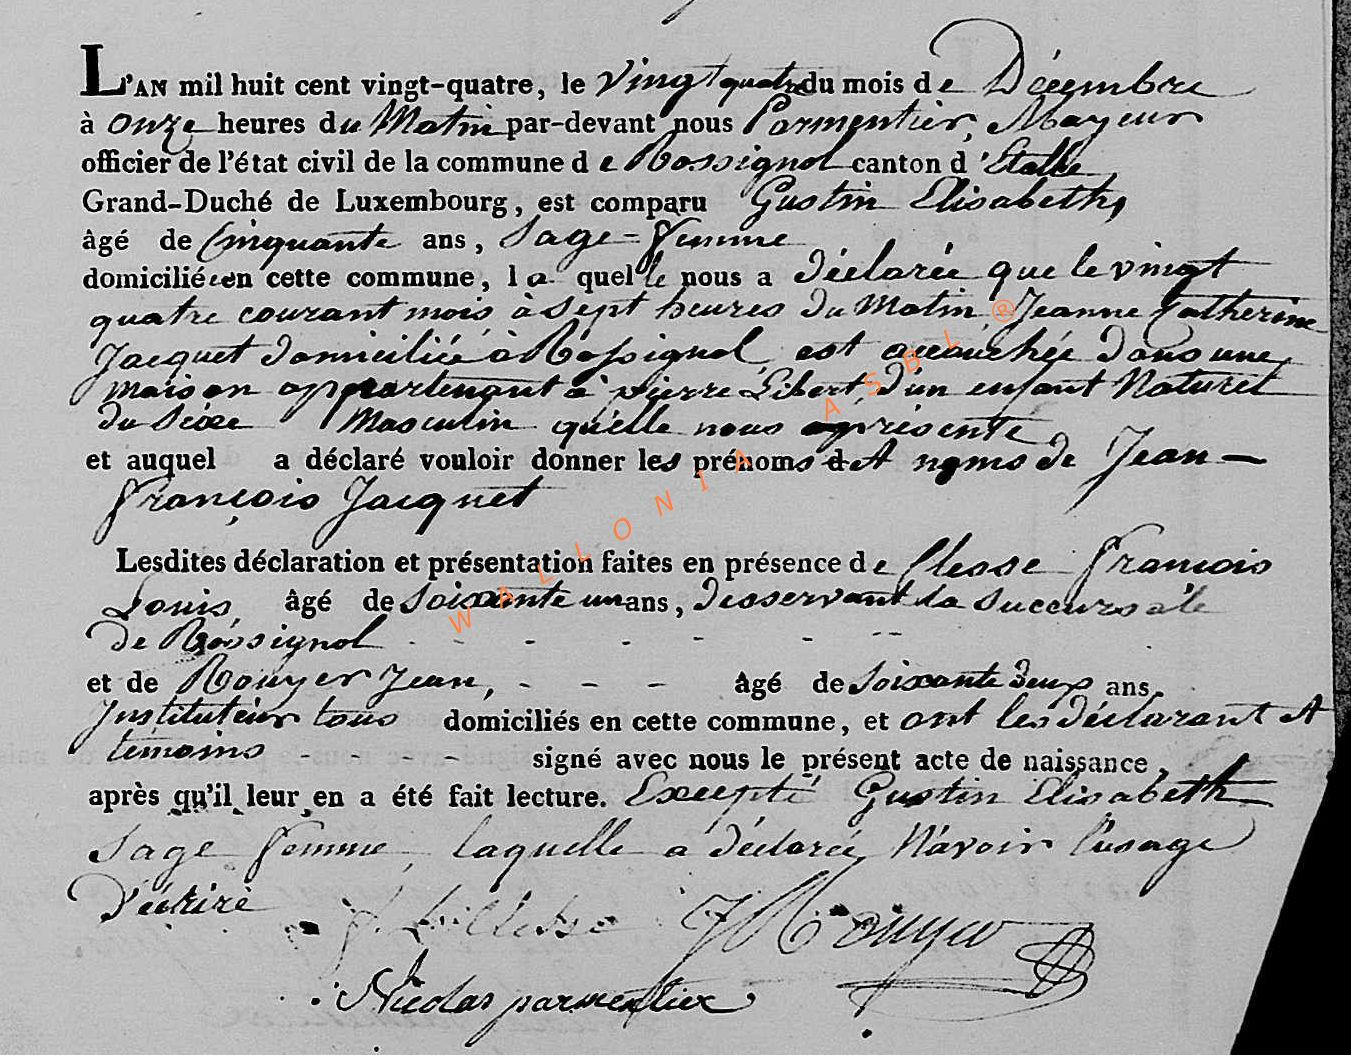 L'AN mil huit cent vingt-quatre, le vingt quatre du mois de Décembre
à onze heures du Matin par-devant nous Parmentier, Mayeur
officier de l'état civil de la commune de Rossignol canton d'Etalle
Grand-Duché de Luxembourg, est comparu Gustin Elisabeth,
âgé de Cinquante ans, Sage-femme
domiciliée en cette commune, laquelle nous a déclarée que le vingt
quatre courant mois à sept heures du Matin, Jeanne Catherine
Jacquet domiciliée à Rossignol, est accouchée dans une
maison appartenant à pierre Gibert, d'un enfant Naturel
du Sexe Masculin qu'elle nous a présenté
et auquel a déclaré vouloir donner les prénoms et noms de Jean-
François Jacquet
Lesdites déclaration et présentation faites en présence de Clesse François
Louis âgé de Soixante un ans, desservant la Succursale
de Rossignol - - - - - -
et de Rouyer Jean, - - - âgé de Soixante deux ans
Instituteur tous domiciliés en cette commune, et ont les déclarant et
témoins - - signé avec nous le présent acte de naissance,
après qu'il leur en a été fait lecture. Excepté Gustin Elisabeth
Sage femme, laquelle a déclarée N'avoir l'usage
d'écrire
J Rouyer
Nicolas parmentier
WALLONIA ASBL ®